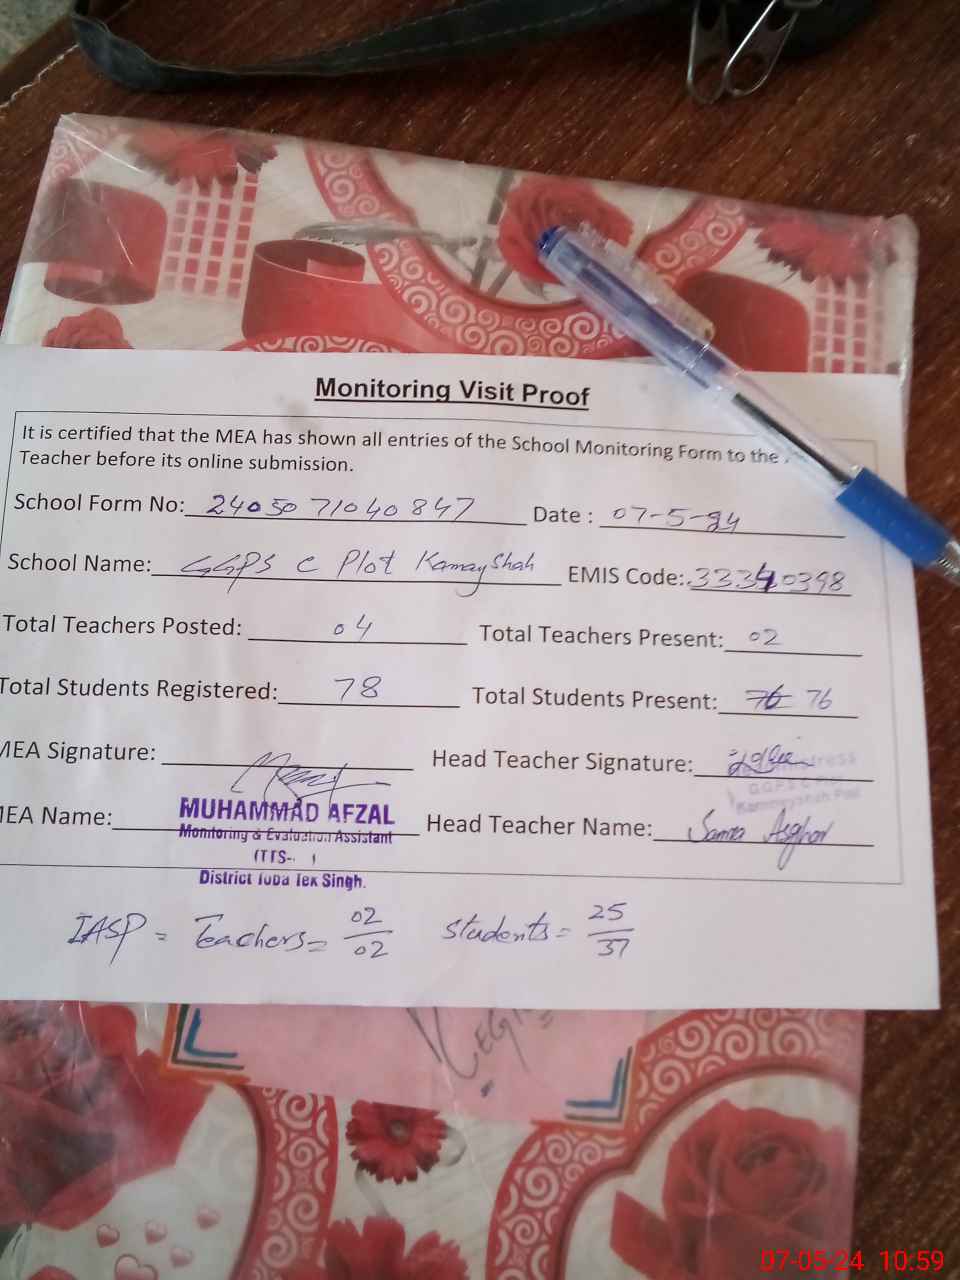 Monitoring Visit Proof
It is certified that the MEA has shown all entries of the School Monitoring Form to the
Teacher before its online submission.
School Form No: 24050 71040847 Date : 07-5-24
School Name: GGPS C Plot Kamay Shah EMIS Code: 33340398
Total Teachers Posted: 04 Total Teachers Present: 02
Total Students Registered: 78 Total Students Present: 76 76
MEA Signature: Head Teacher Signature:
MEA Name: MUHAMMAD AFZAL Head Teacher Name: Samra Asghar
Monitoring & Evaluation Assistant
(TTS- )
District Toba Tek Singh.
IASP = Teachers = 02/02 Students = 25/37
07-05-24 10:59